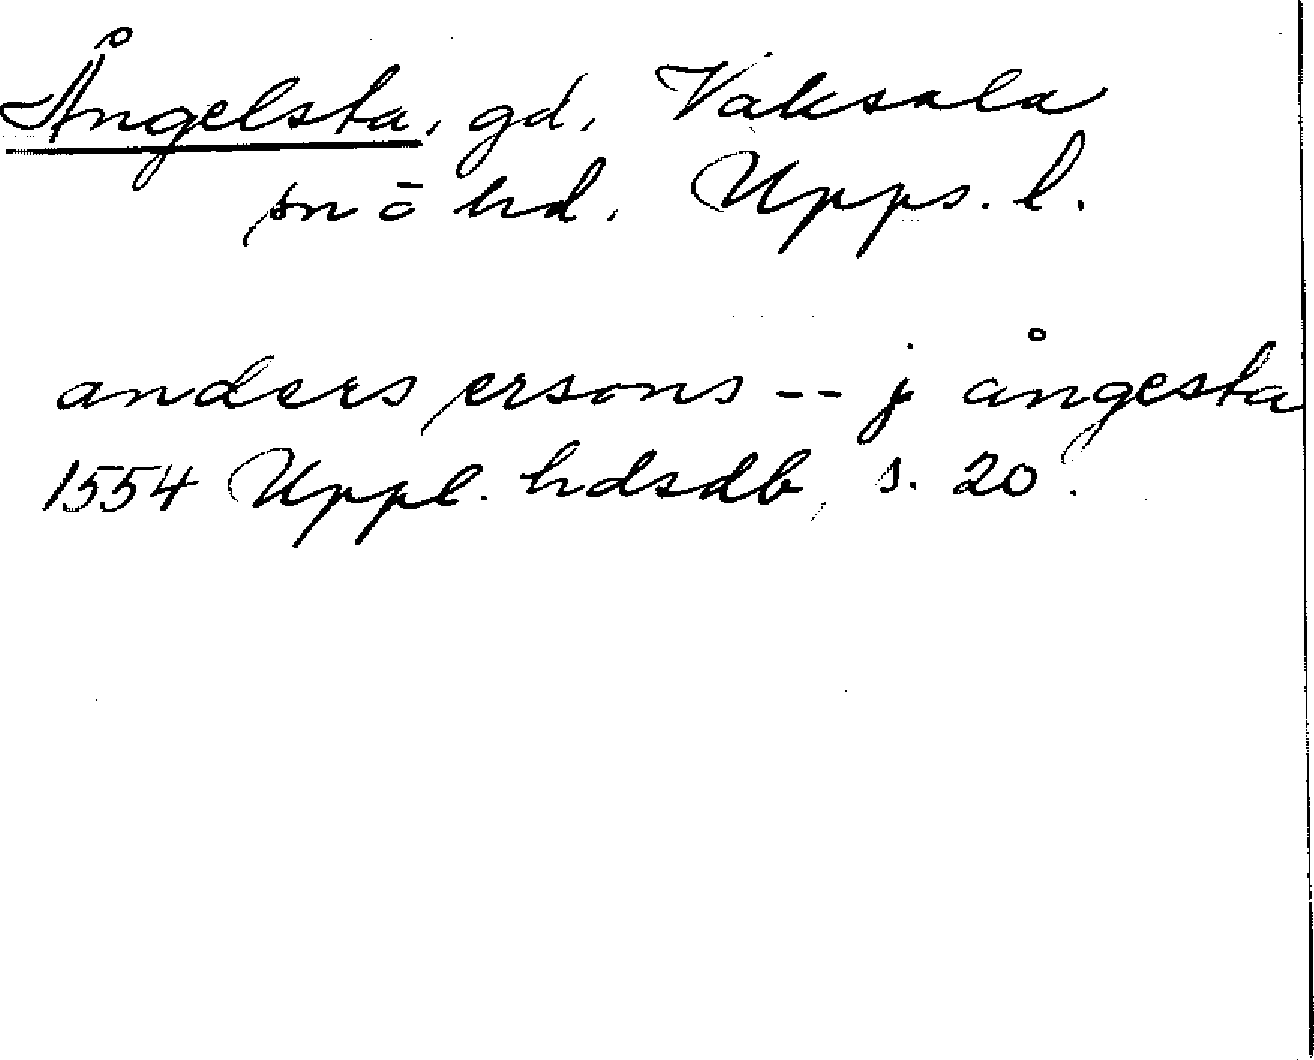 Ångelsta, gd, Vaksala
sn o hd. Upps. l.
anders ersons -- j ångesta
1554 Uppl. hdsdb, s. 20.